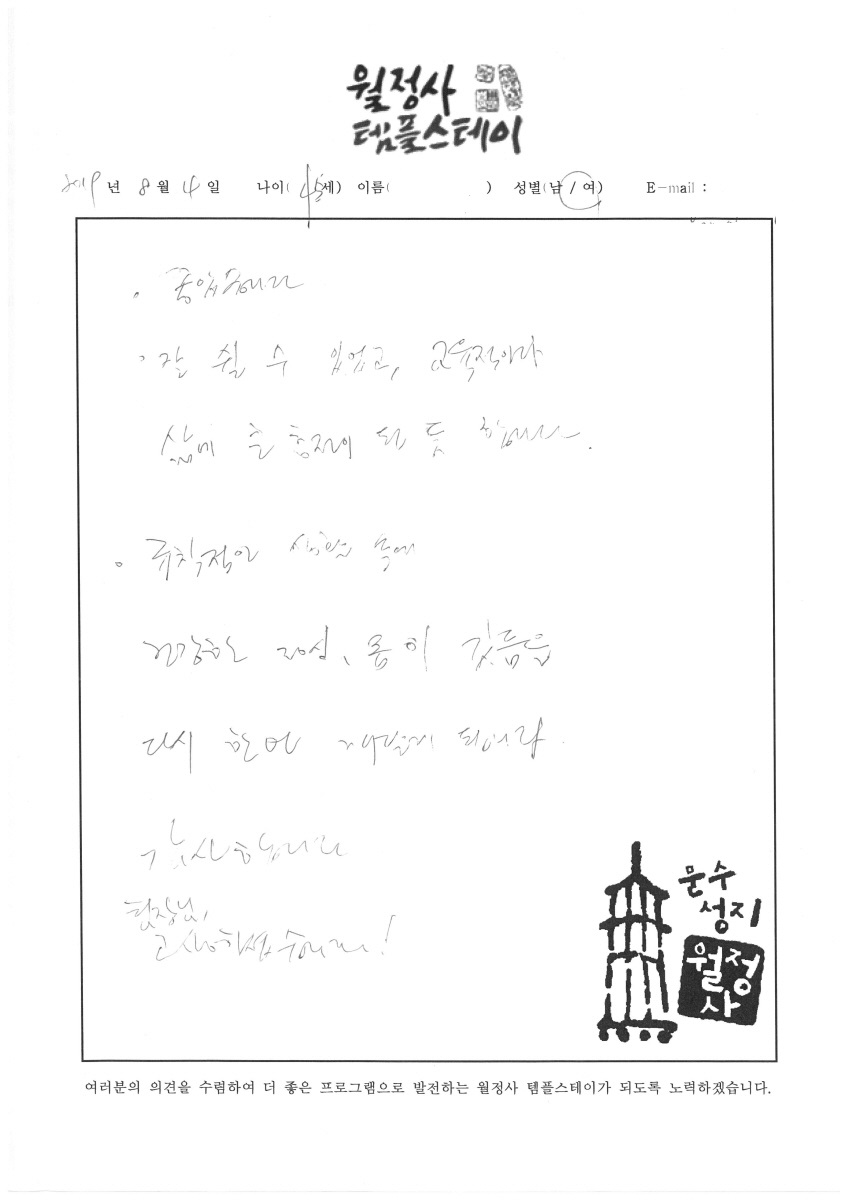 월정사
템플스테이
2019년 8월 4일 나이( 45세) 이름( ) 성별(남 / 여) E-mail :
· 좋았습니다
· 잘 쉴 수 있었고, 교육적이라
삶에 큰 힘이 될 듯 합니다.
· 규칙적인 생활 속에
건강한 정신, 몸이 깃듦을
다시 한번 깨닫게 되어라
감사합니다
팀장님,
고생하셨습니다!
문수
성지
월정
사
여러분의 의견을 수렴하여 더 좋은 프로그램으로 발전하는 월정사 템플스테이가 되도록 노력하겠습니다.